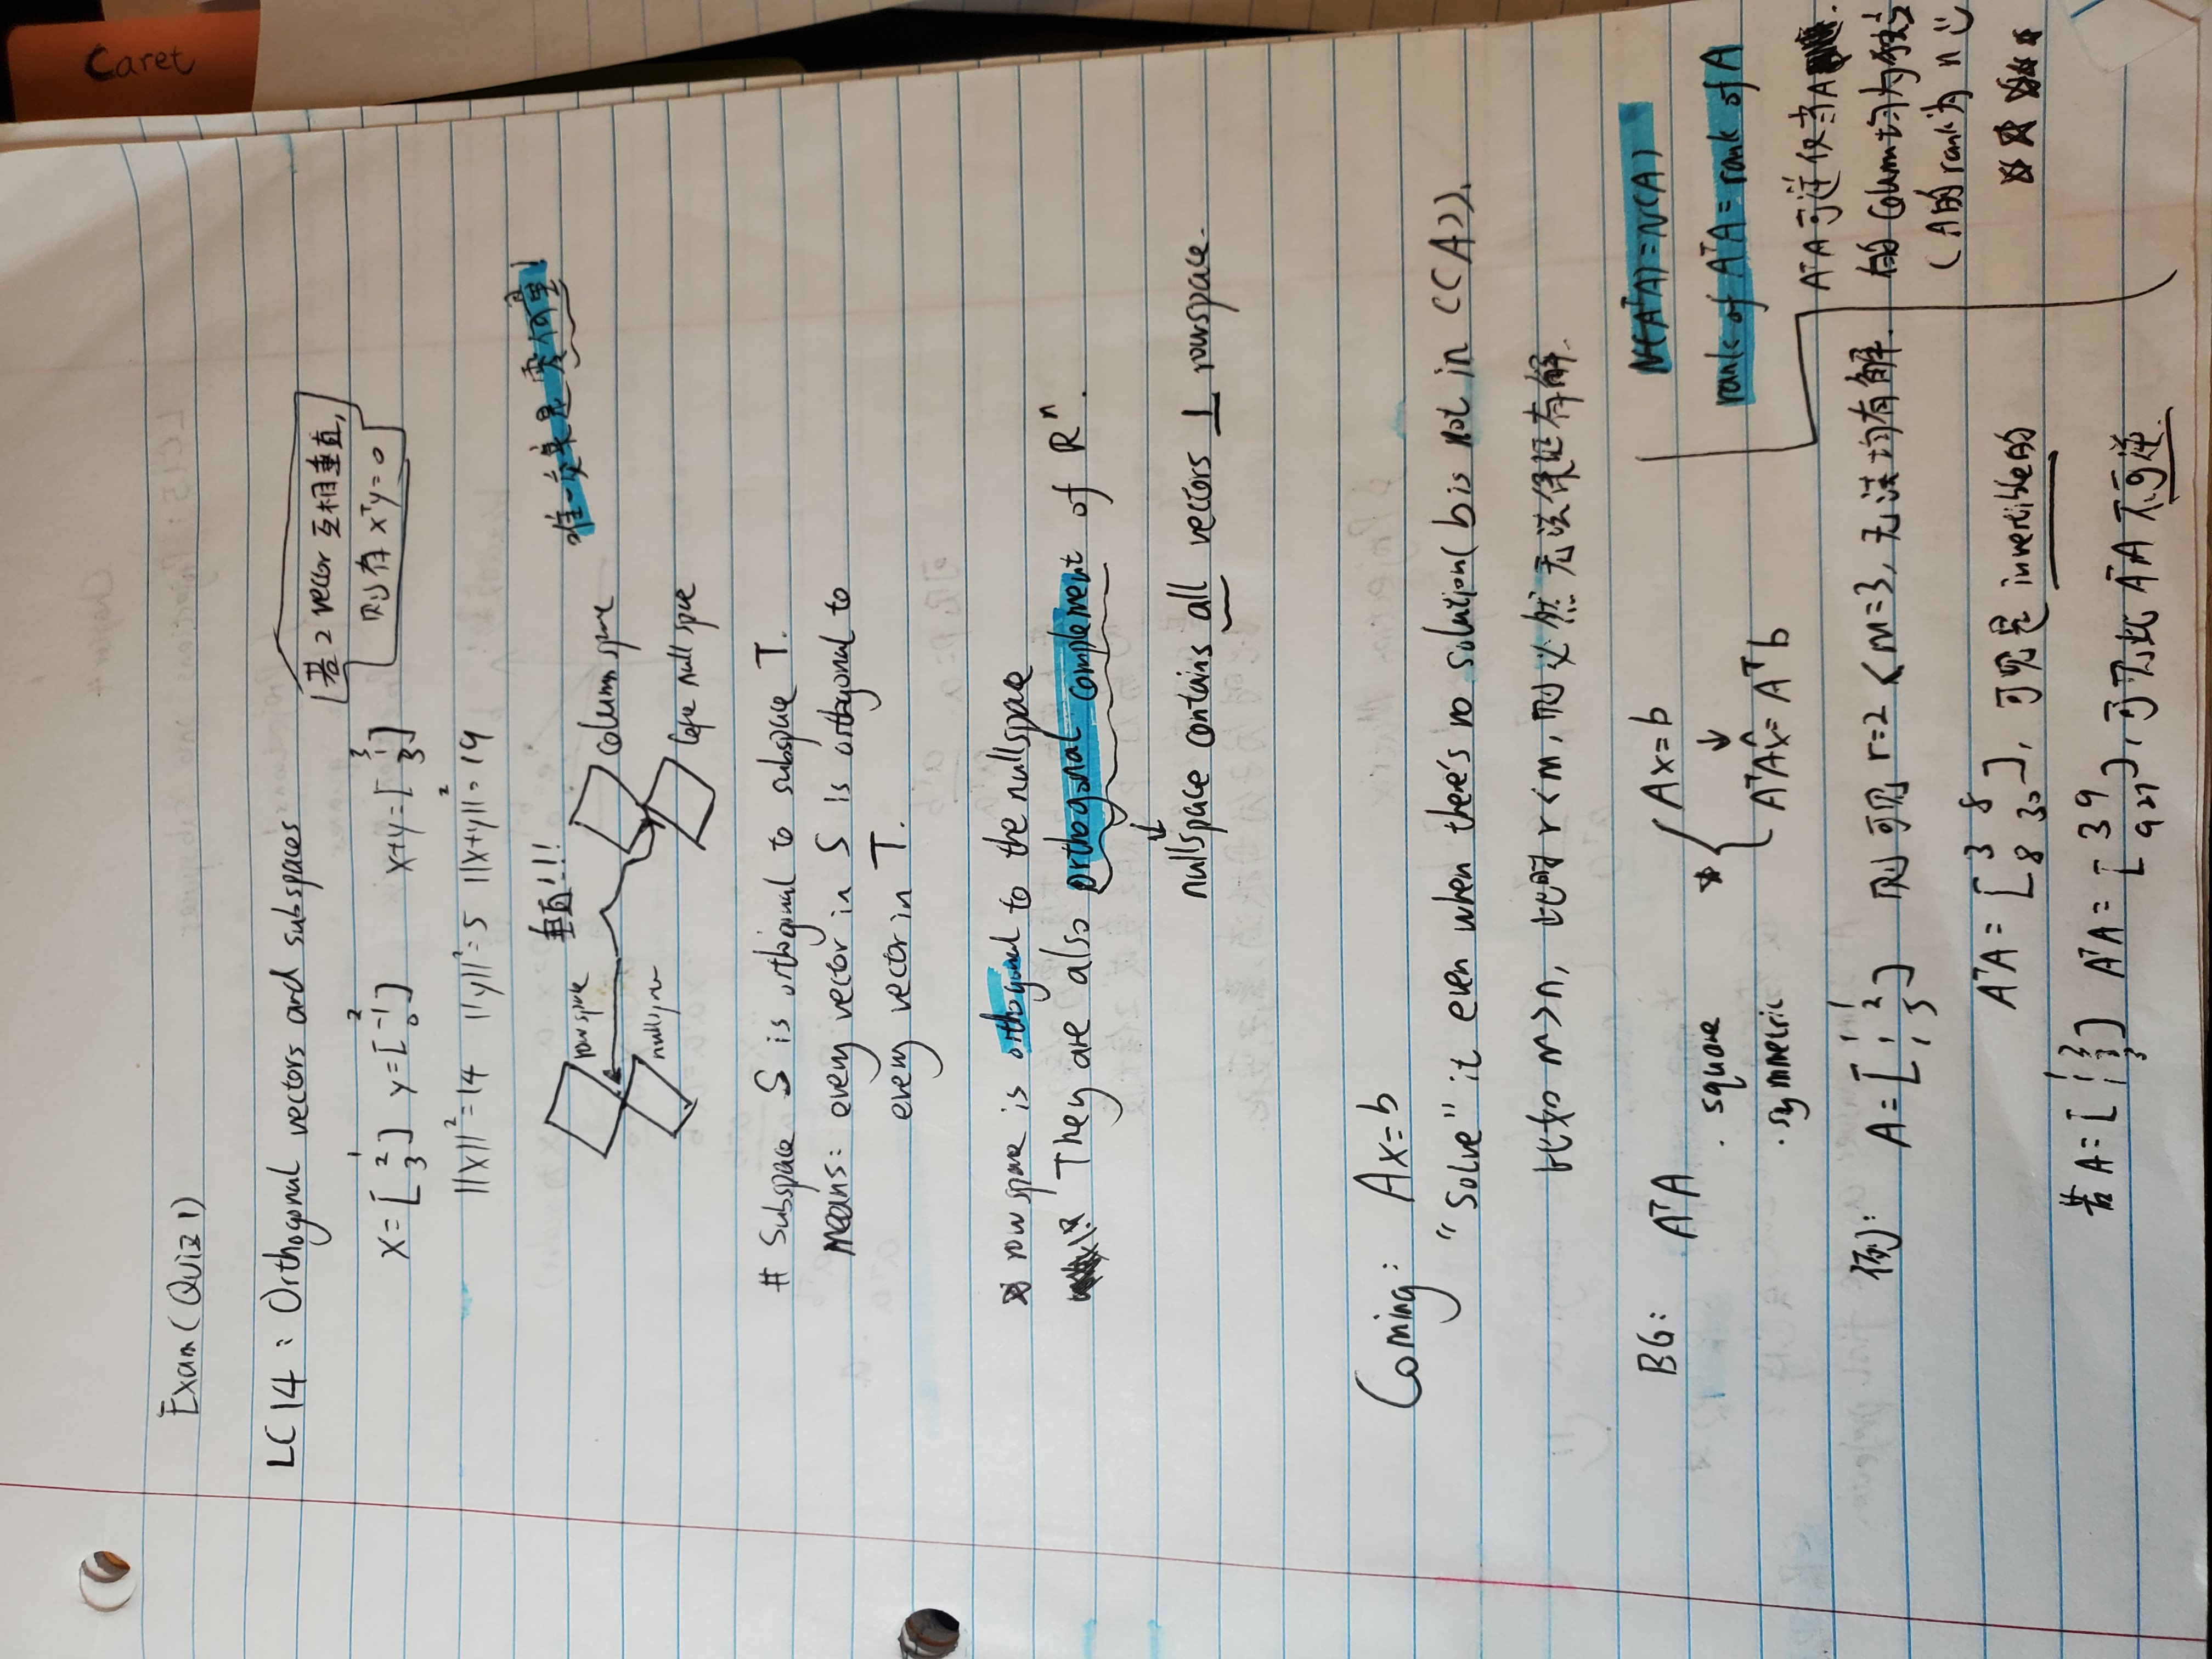 Caret
Exam (Quiz 1)
LC 14 : Orthogonal vectors and subspaces
若 2 vector 互相垂直,
则有 xᵀy = 0
x = [ 1 2 3 ] y = [ 2 -1 0 ] x+y = [ 3 1 3 ]
||x||² = 14 ||y||² = 5 ||x+y||² = 19
垂直!!!
唯一交集是零向量!
row space
column space
nullspace
left null space
# Subspace S is orthogonal to subspace T.
means: every vector in S is orthogonal to
every vector in T.
row space is orthogonal to the nullspace
They are also orthogonal complement of Rⁿ.
↓
nullspace contains all vectors ⊥ rowspace.
Coming: Ax = b
"Solve" it even when there's no solution ( b is not in C(A)).
比如 m > n, 此时 r < m, 则必然无法保证有解.
BG: AᵀA
· square
· symmetric
Ax = b
↓
AᵀAx̂ = Aᵀb
N(AᵀA) = N(A)
rank of AᵀA = rank of A
AᵀA 可逆仅当 A
的 column 均为独立
( A的 rank 为 n
例: A = [ 1 1 1 2 1 5 ] 则可见 r = 2 < m = 3, 无法均有解.
AᵀA = [ 3 8 8 30 ], 可见是 invertible的
若 A = [ 1 3 1 3 1 3 ] AᵀA = [ 3 9 9 27 ], 可见此 AᵀA 不可逆.